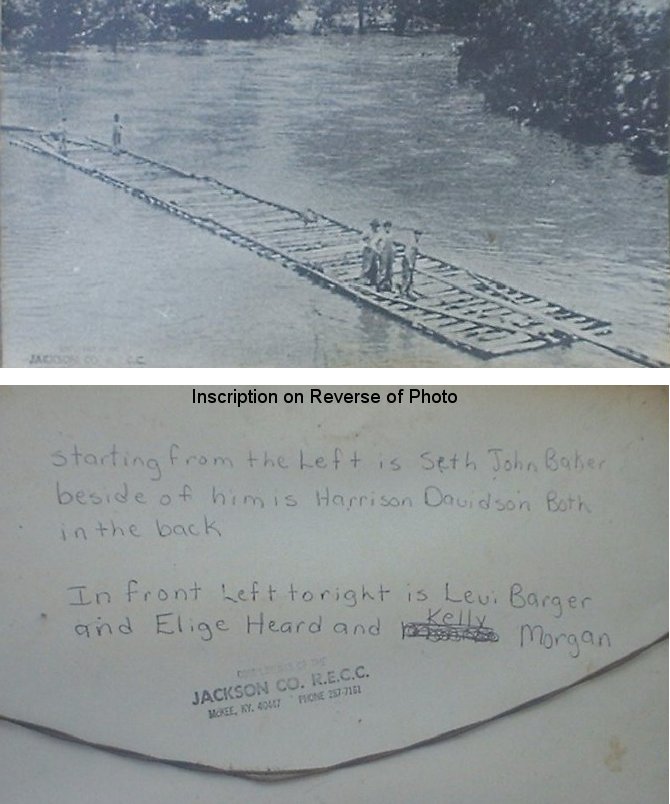 JACKSON CO. C.C.
Inscription on Reverse of Photo
starting from the Left is Seth John Baker
beside of him is Harrison Davidson Both
in the back
In front Left to right is Levi Barger
Kelly
and Elige Heard and Morgan
COMPLIMENTS OF THE
JACKSON CO. R.E.C.C.
McKEE, KY. 40447 PHONE 287-7161